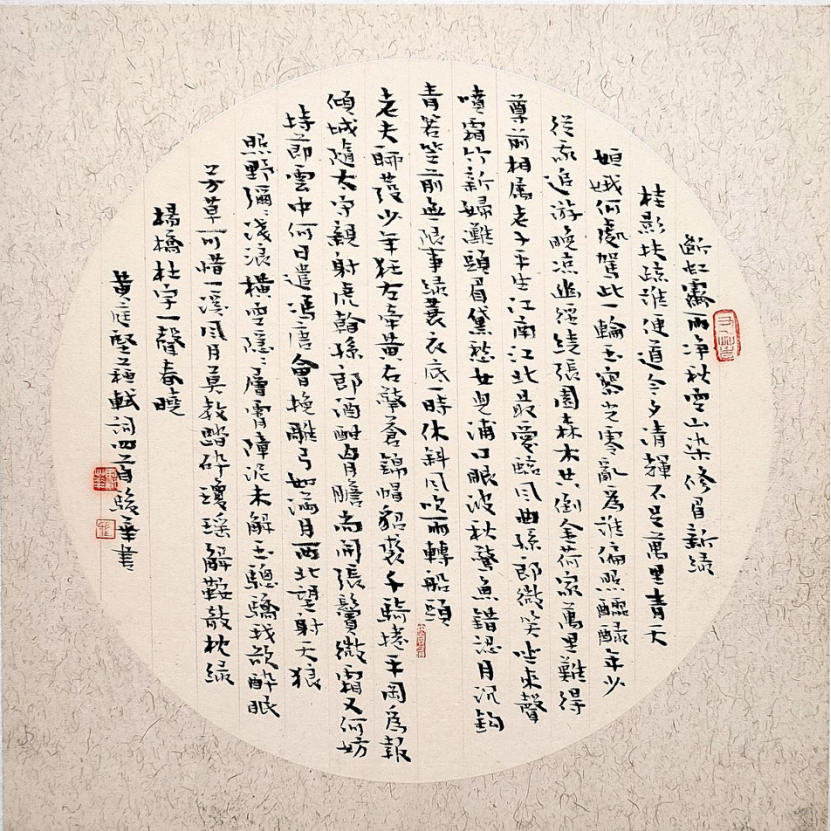 斷虹霽雨净秋空山染修眉新綠
桂影扶疏誰便道今夕清輝不足萬里青天
姮娥何處駕此一輪玉寒光零亂為誰偏照醽醁年少
從我追游晚涼幽徑繞張園森木共倒金荷家萬里難得
尊前相屬老子平生江南江北最愛臨風曲孫郎微笑坐來聲
噴霜竹新婦灘頭眉黛愁女兒浦口眼波秋驚魚錯認月沉鈎
青箬笠前無限事綠蓑衣底一時休斜風吹雨轉船頭
老夫聊發少年狂左牽黃右擎蒼錦帽貂裘千騎捲平岡為報
傾城隨太守親射虎看孫郎酒酣胸膽尚開張鬢微霜又何妨
持節雲中何日遣馮唐會挽雕弓如滿月西北望射天狼
照野彌々淺浪橫空隱々層霄障泥未解玉驄驕我欲醉眠
芳草可惜一溪風月莫教踏碎瓊瑤解鞍欹枕綠
楊橋杜宇一聲春曉
黃庭堅蘇軾詞四首駿華書